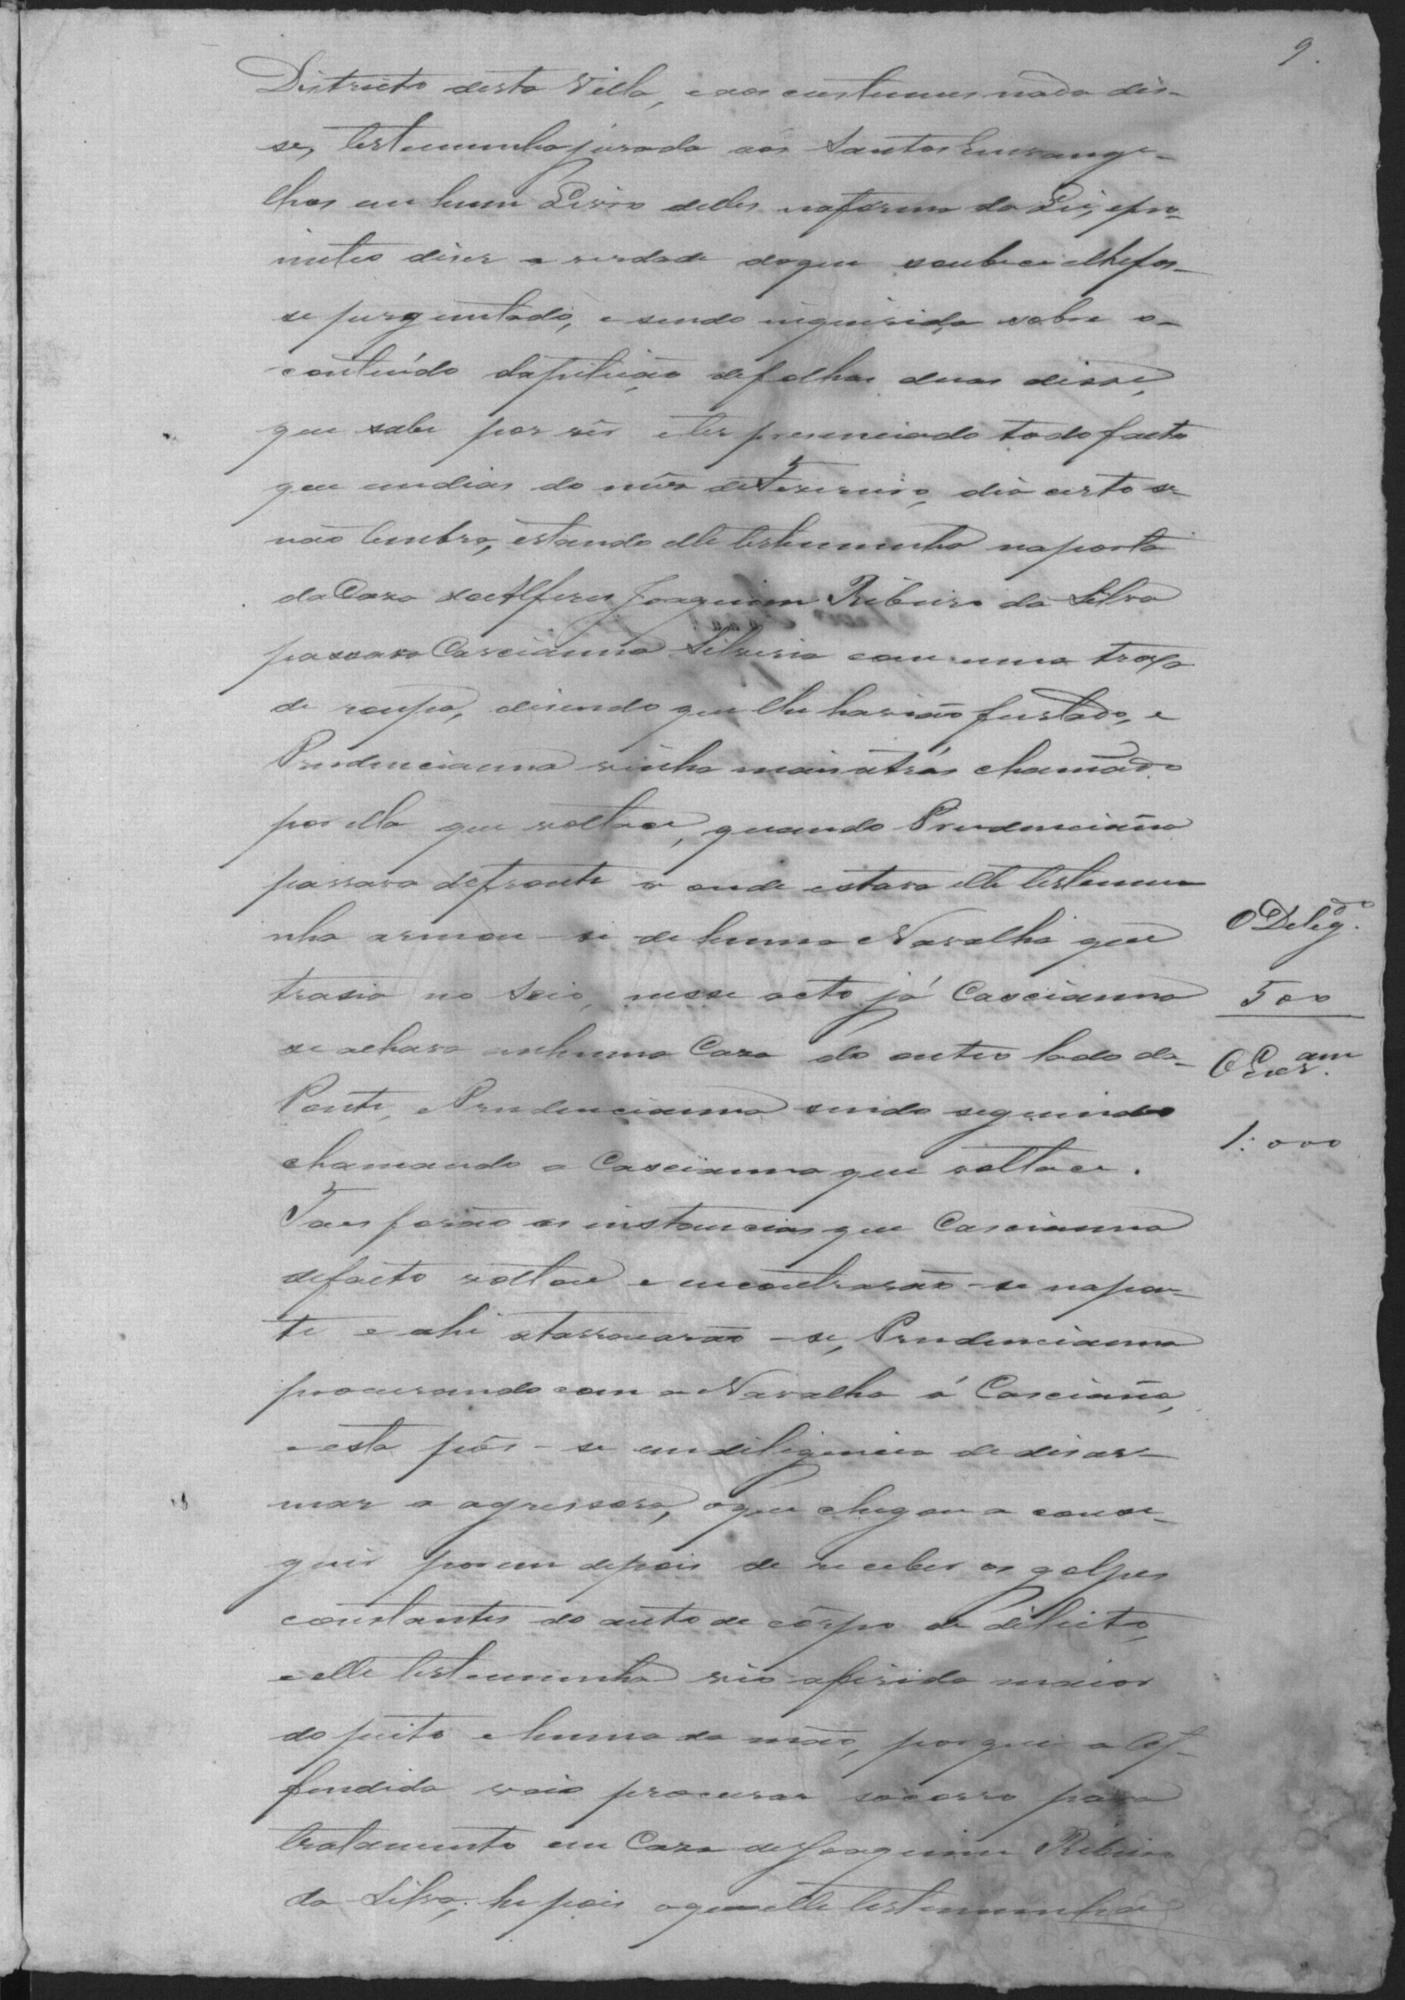 9.
Districto desta Villa, e aos custumes nada dis-
se, testemunha jurada aos Santos Euvange-
lhos em hum Livro delles na forma da Lei, e pro-
meteo diser a verdade do que soubece e lhe fos-
se purguntado, e sendo inquirida sobre o
contiúdo da pitição de folhas duas disse,
que sabe por vêr e ter prenunciado todo facto
que em dias do mês de Fevereiro, dia certo se
não lembra, estando elle testemunha na porta
da Caza do Alferes Joaquim Ribeiro da Silva
passava Cascianna Silveria com uma troxa
de roupa, disendo que lhe havião furtado, e
Prudencianna vinha mais atrás chamado
por ella que voltace, quando Prudenciaña
passava defronte a onde estava elle testemu
nha armou-se de huma Navalha que
trasia no Seio, nesse acto já Cascianna
se achava em huma Caza do outro lado da
Ponte, e Prudencianna sendo seguindo
chamando a Cascianna que voltace.
Taes forão as instancias que Cascianna
de facto voltou e encontrarão-se na pon-
te e ahi atarracarão-se, Prudencianna
procurando com a Navalha á Casciaña,
e esta pôs-se em diligencia de disar-
mar a agressora, o que chegou a conse-
guir porem depois de receber os golpes
constantes do auto de côrpo de dilicto,
e elle testemunha vio a firida maior
do peito e huma da mão, por que a Of-
fendida veio procurar socorro para
tratamento em Caza de Joaquim Ribeiro
da Silva; he pois o que elle testemunha
O Deleg.do
500
O Escr.am
1:000